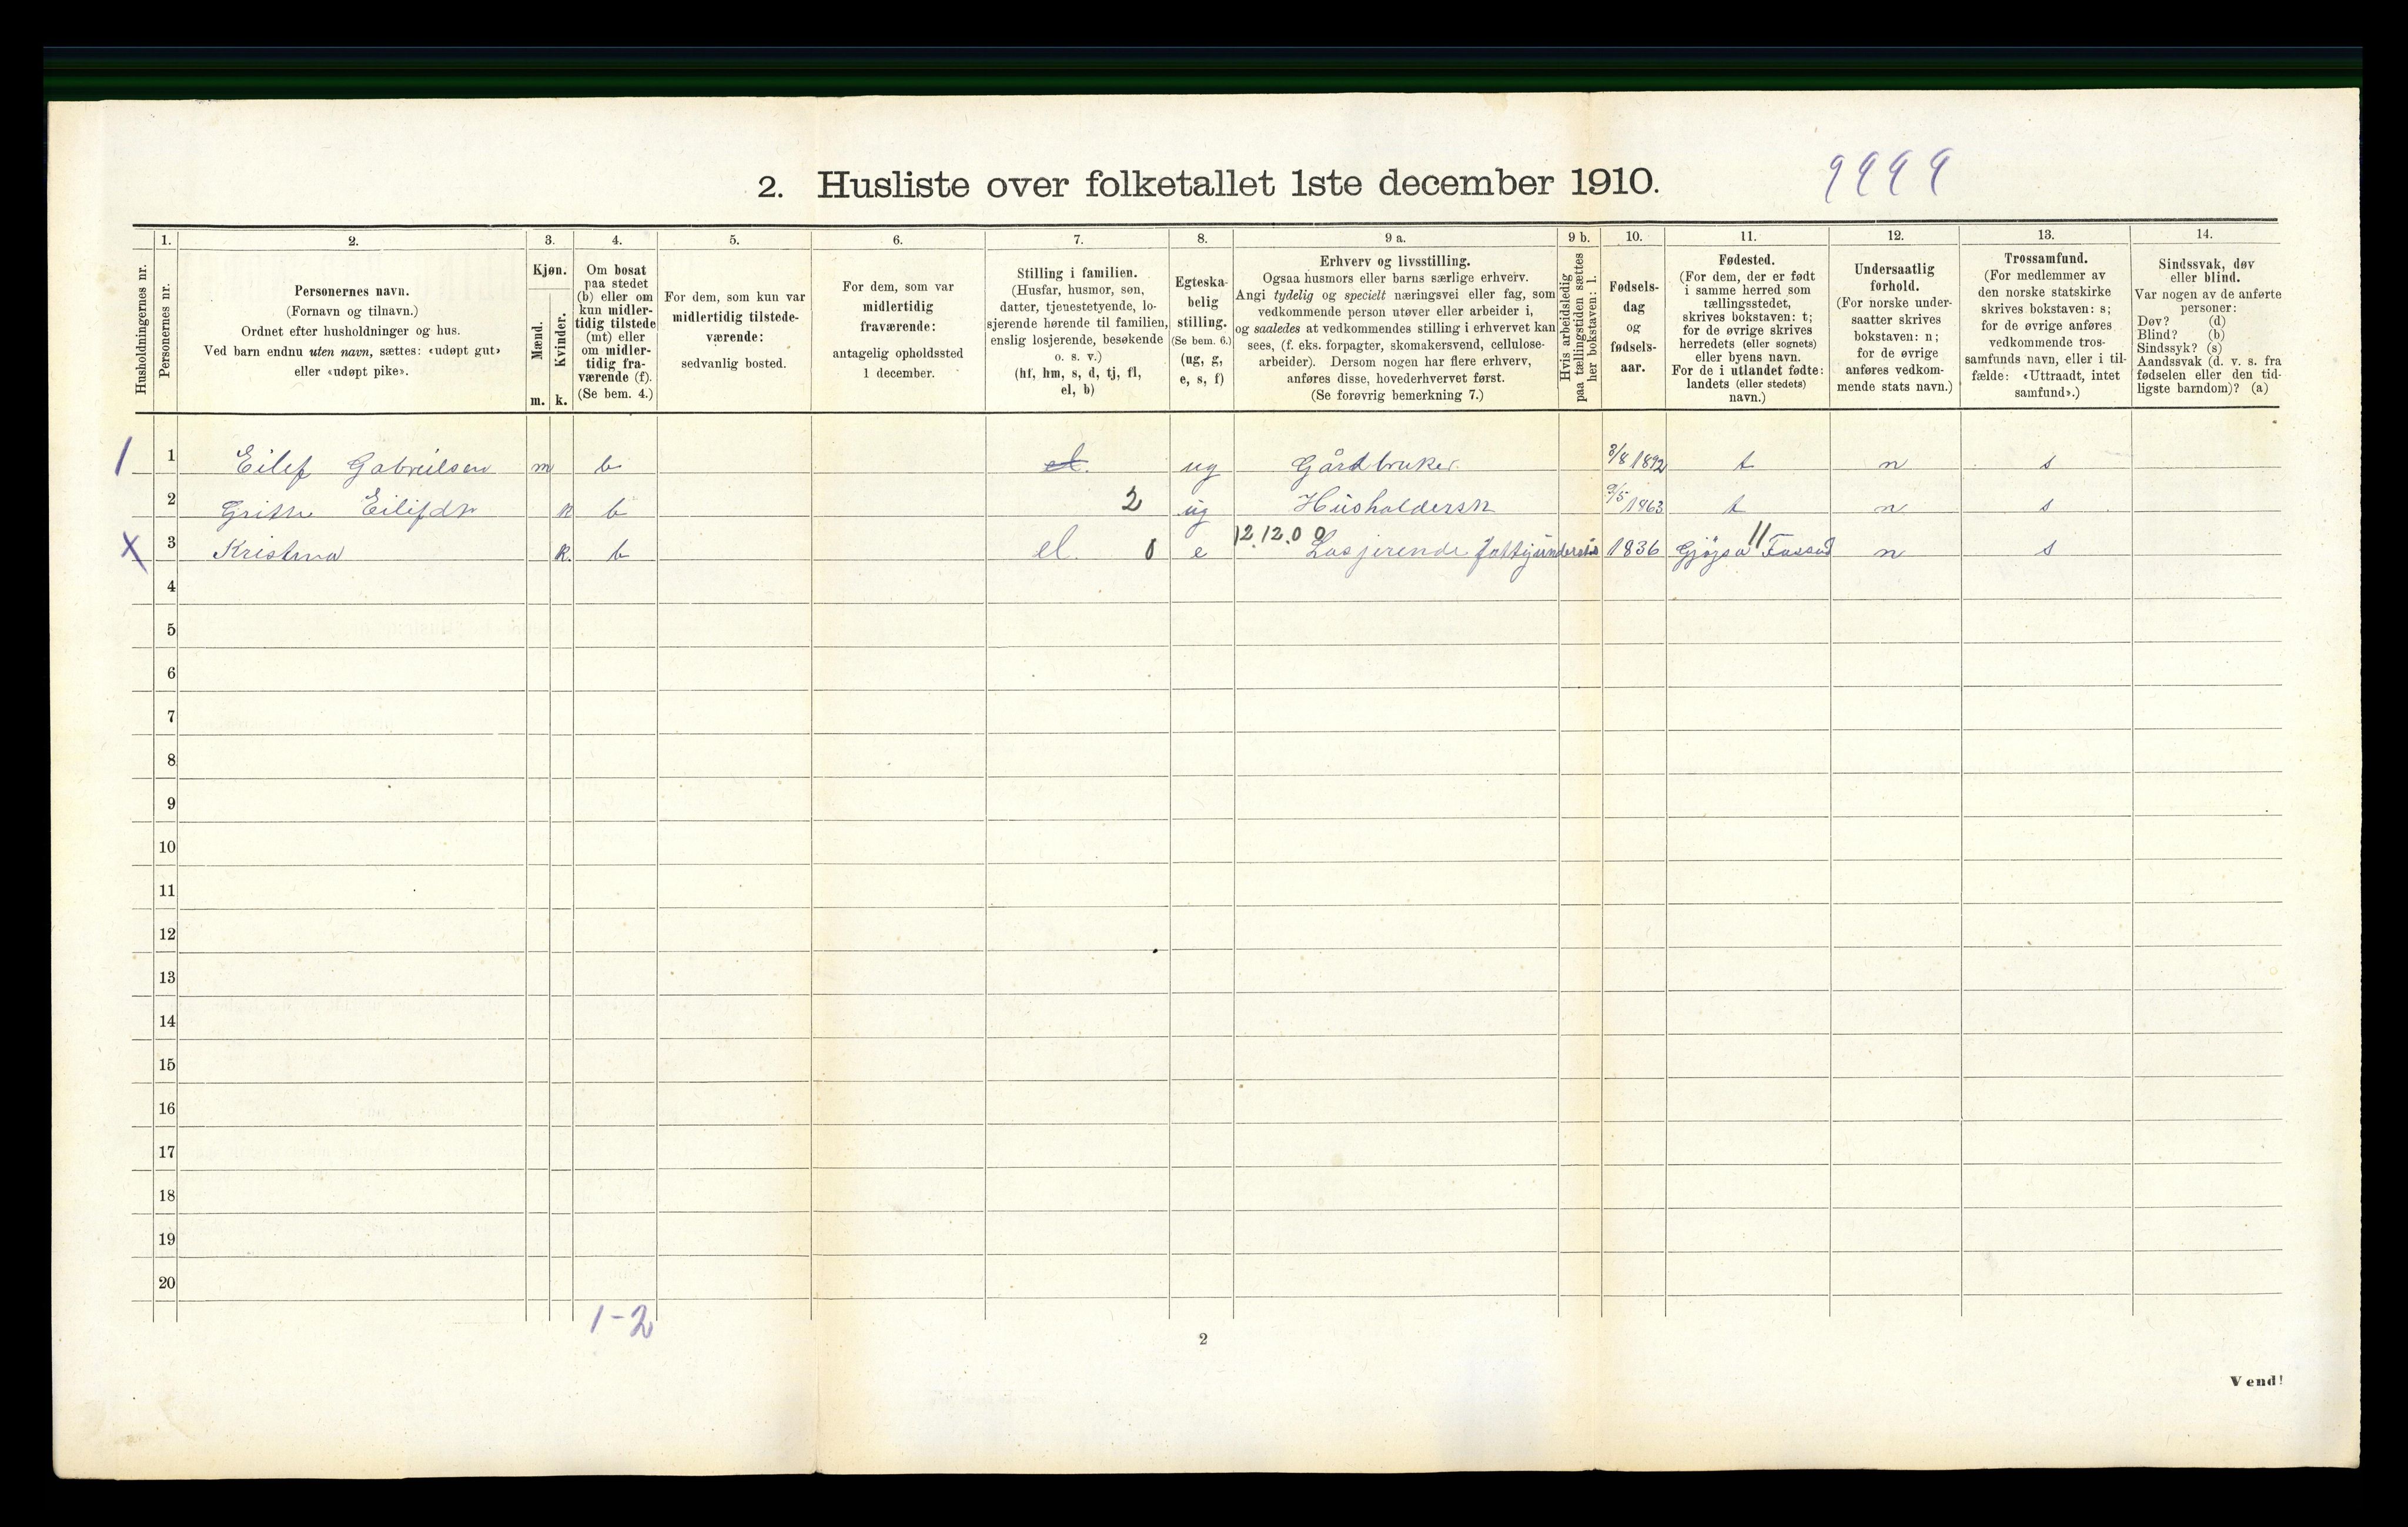 2. Husliste over folketallet 1ste december 1910.
9999
Husholdningernes nr.
1.
Personernes nr.
2.
Personernes navn.
(Fornavn og tilnavn.)
Ordnet efter husholdninger og hus.
Ved barn endnu uten navn, sættes: «udøpt gut»
eller «udøpt pike».
3.
Kjøn.
Mænd.
Kvinder.
m. k.
4.
Om bosat
paa stedet
(b) eller om
kun midler-
tidig tilstede
(mt) eller
om midler-
tidig fra-
værende (f).
(Se bem. 4.)
5.
For dem, som kun var
midlertidig tilstede-
værende:
sedvanlig bosted.
6.
For dem, som var
midlertidig
fraværende:
antagelig opholdssted
1 december.
7.
Stilling i familien.
(Husfar, husmor, søn,
datter, tjenestetyende, lo-
sjerende hørende til familien,
enslig losjerende, besøkende
o. s. v.)
(hf, hm, s, d, tj, fl,
el, b)
8.
Egteska-
belig
stilling.
(Se bem. 6.)
(ug, g,
e, s, f)
9 a.
Erhverv og livsstilling.
Ogsaa husmors eller barns særlige erhverv.
Angi tydelig og specielt næringsvei eller fag, som
vedkommende person utøver eller arbeider i,
og saaledes at vedkommendes stilling i erhvervet kan
sees, (f. eks. forpagter, skomakersvend, cellulose-
arbeider). Dersom nogen har flere erhverv,
anføres disse, hovederhvervet først.
(Se forøvrig bemerkning 7.)
9 b.
Hvis arbeidsledig
paa tællingstiden sættes
her bokstaven: l.
10.
Fødsels-
dag
og
fødsels-
aar.
11.
Fødested.
(For dem, der er født
i samme herred som
tællingsstedet,
skrives bokstaven: t;
for de øvrige skrives
herredets (eller sognets)
eller byens navn.
For de i utlandet fødte:
landets (eller stedets)
navn.)
12.
Undersaatlig
forhold.
(For norske under-
saatter skrives
bokstaven: n;
for de øvrige
anføres vedkom-
mende stats navn.)
13.
Trossamfund.
(For medlemmer av
den norske statskirke
skrives bokstaven: s;
for de øvrige anføres
vedkommende tros-
samfunds navn, eller i til-
fælde: «Uttraadt, intet
samfund».)
14.
Sindssvak, døv
eller blind.
Var nogen av de anførte
personer:
Døv? (d)
Blind? (b)
Sindssyk? (s)
Aandssvak (d. v. s. fra
fødselen eller den tid-
ligste barndom)? (a)
1 1 Eilef Gabrielsen m b el. ug Gårdbruker 3/8 1892 t n s
2 Eilifdtr k b 2 ug Husholdersk 9/5 1863 t n s
12.12.0 0 11
X 3 Kristina k. b el. 0 e Losjerende 1836 n s
4
5
6
7
8
9
10
11
12
13
14
15
16
17
18
19
20
1-2
2
Vend!